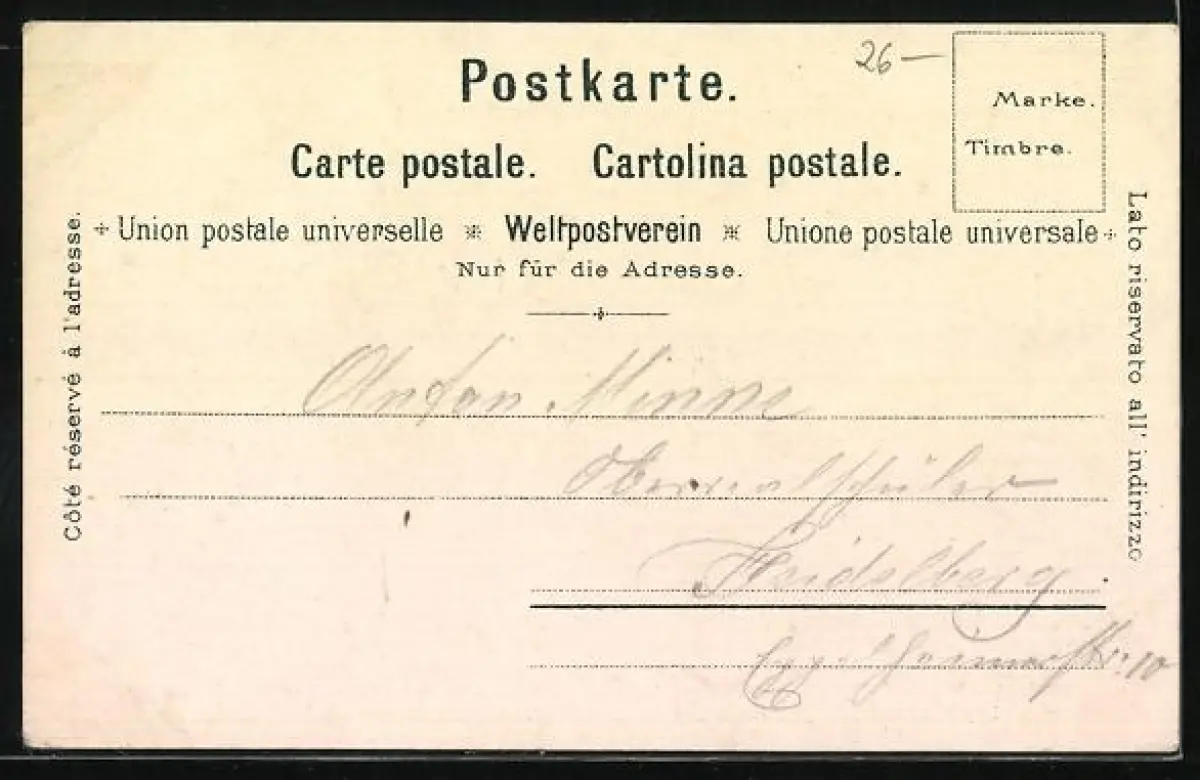 26 —
Postkarte.
Marke.
Timbre.
Carte postale. Cartolina postale.
Union postale universelle Weltpostverein Unione postale universale
Nur für die Adresse.
Côté réservé à l'adresse.
Lato riservato all' indirizzo
Anton Minne
Oberrealschüler
Heidelberg.
10